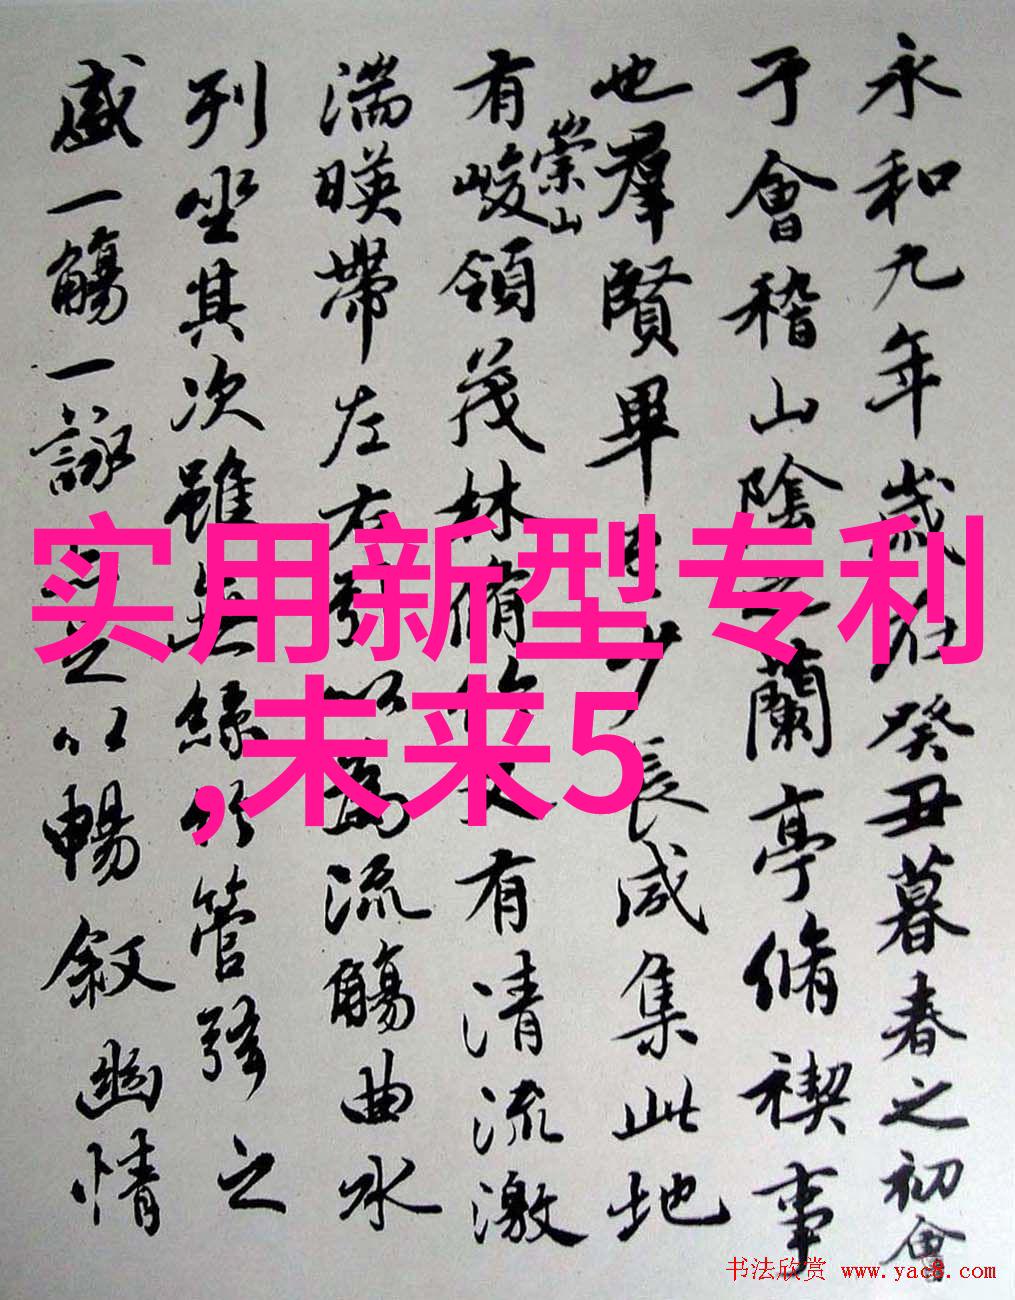 永和九年歲在癸丑暮春之初會
于會稽山陰之蘭亭脩禊事
也羣賢畢至少長咸集此地
有崇山峻領茂林脩竹又有清流激
湍暎帶左右引以為流觴曲水
列坐其次雖無絲竹管弦之
盛一觴一詠亦足以暢叙幽情
实用新型专利
,未来5
书法欣赏 www.yac8.com